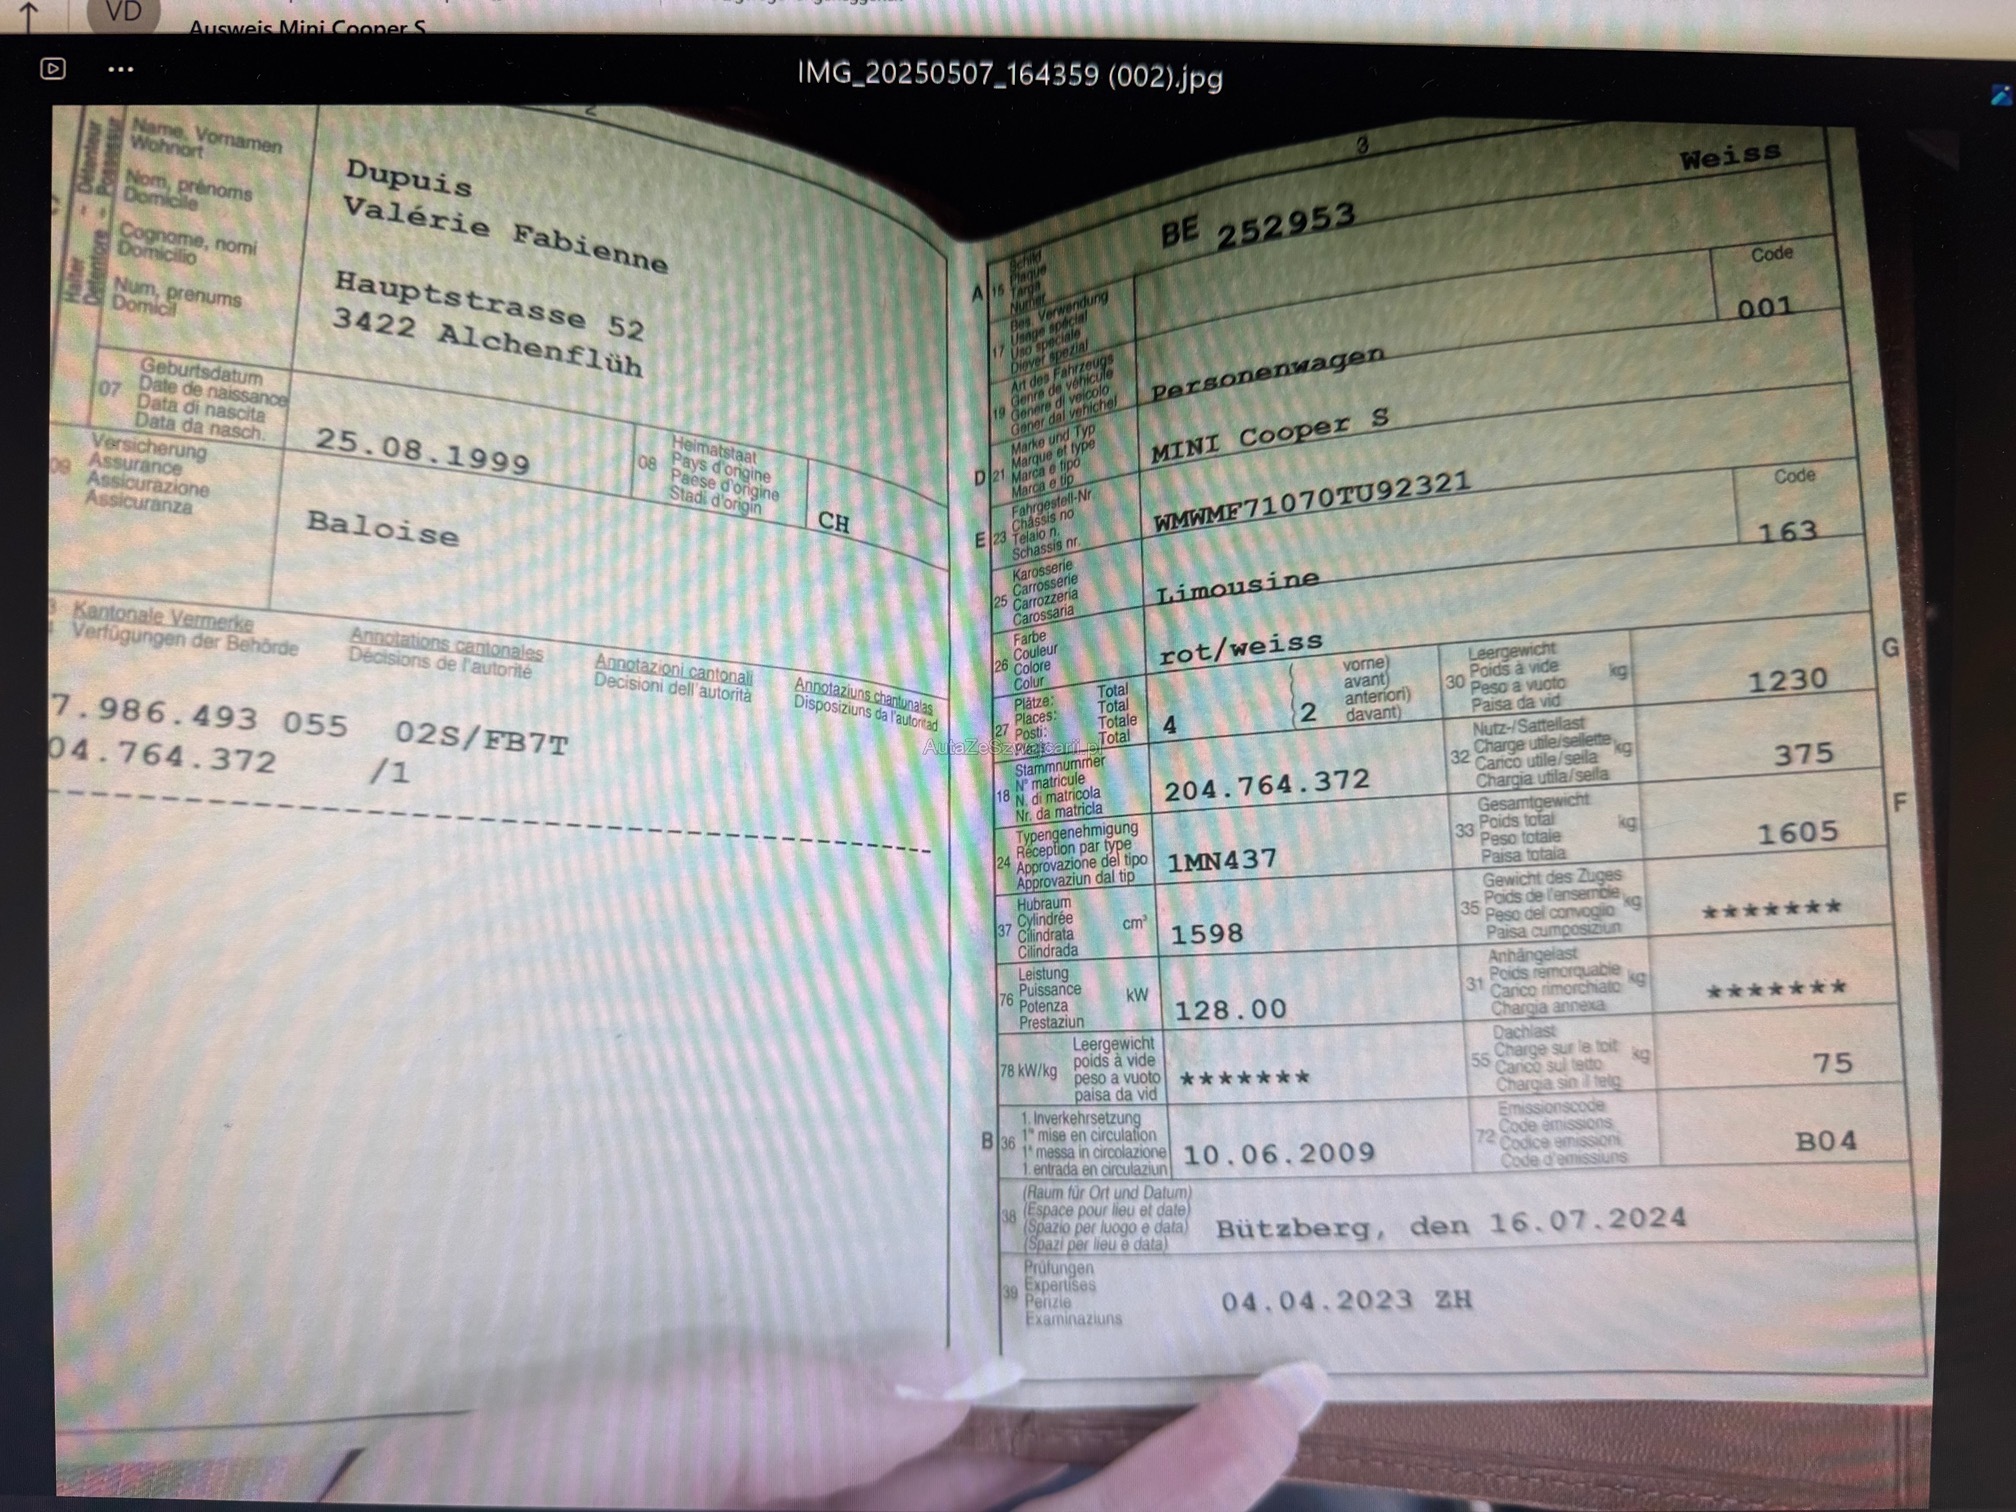 VD
Ausweis Mini Cooper S
IMG_20250507_164359 (002).jpg
2
Halter - Détenteur
Detentore - Possessur
Name, Vornamen
Wohnort
Nom, prénoms
Domicile
Cognome, nomi
Domicilio
Num, prenums
Domicil
Dupuis
Valérie Fabienne
Hauptstrasse 52
3422 Alchenflüh
07
Geburtsdatum
Date de naissance
Data di nascita
Data da nasch.
25.08.1999
08
Heimatstaat
Pays d'origine
Paese d'origine
Stadi d'origin
CH
09
Versicherung
Assurance
Assicurazione
Assicuranza
Baloise
Kantonale Vermerke
Verfügungen der Behörde
Annotations cantonales
Décisions de l'autorité
Annotazioni cantonali
Decisioni dell'autorità
Annotaziuns chantunalas
Disposiziuns da l'autoritad
7.986.493 055 02S/FB7T
04.764.372 /1
AutaZeSzwajcarii.pl
3
Weiss
A 15
Schild
Plaque
Targa
Numer
BE 252953
17
Bes. Verwendung
Usage spécial
Uso speciale
Diever spezial
Code
001
19
Art des Fahrzeugs
Genre de véhicule
Genere di veicolo
Gener dal vehichel
Personenwagen
D 21
Marke und Typ
Marque et type
Marca e tipo
Marca e tip
MINI Cooper S
E 23
Fahrgestell-Nr.
Châssis no
Telaio n.
Schassis nr.
WMWMF71070TU92321
Code
163
25
Karosserie
Carrosserie
Carrozzeria
Carossaria
Limousine
26
Farbe
Couleur
Colore
Colur
rot/weiss
27
Plätze: Total
Places: Total
Posti: Totale
Total
4
2
vorne)
avant)
anteriori)
davant)
30
Leergewicht
Poids à vide
Peso a vuoto
Paisa da vid
kg
1230
G
18
Stammnummer
N° matricule
N. di matricola
Nr. da matricla
204.764.372
32
Nutz-/Sattellast
Charge utile/sellette
Carico utile/sella
Chargia utila/sella
kg
375
24
Typengenehmigung
Réception par type
Approvazione del tipo
Approvaziun dal tip
1MN437
33
Gesamtgewicht
Poids total
Peso totale
Paisa totala
kg
1605
F
37
Hubraum
Cylindrée
Cilindrata
Cilindrada
cm³
1598
35
Gewicht des Zuges
Poids de l'ensemble
Peso del convoglio
Paisa cumposiziun
kg
*******
76
Leistung
Puissance
Potenza
Prestaziun
kW
128.00
31
Anhängelast
Poids remorquable
Carico rimorchiato
Chargia annexa
kg
*******
78 kW/kg
Leergewicht
poids à vide
peso a vuoto
paisa da vid
*******
55
Dachlast
Charge sur le toit
Carico sul tetto
Chargia sin il tetg
kg
75
B 36
1. Inverkehrsetzung
1re mise en circulation
1a messa in circolazione
1. entrada en circulaziun
10.06.2009
72
Emissionscode
Code émissions
Codice emissioni
Code d'emissiuns
B04
38
(Raum für Ort und Datum)
(Espace pour lieu et date)
(Spazio per luogo e data)
(Spazi per lieu e data)
Bützberg, den 16.07.2024
39
Prüfungen
Expertises
Perizie
Examinaziuns
04.04.2023 ZH